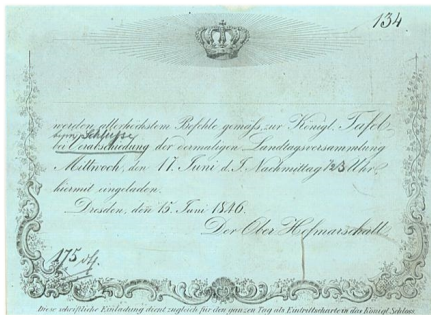 134
werden allerhöchstem Befehle gemäss, zur Königl. Tafel
beym Schlusse
bei Verabschiedung der dermaligen Landtagsversammlung
Mittwoch, den 17 Juni d. J. Nachmittag 1/2 3 Uhr
hiermit eingeladen.
Dresden, den 15 Juni 1846.
Der Ober Hofmarschall
175
Diese schriftliche Einladung dient zugleich für den ganzen Tag als Eintrittskarte in das Königl. Schloss